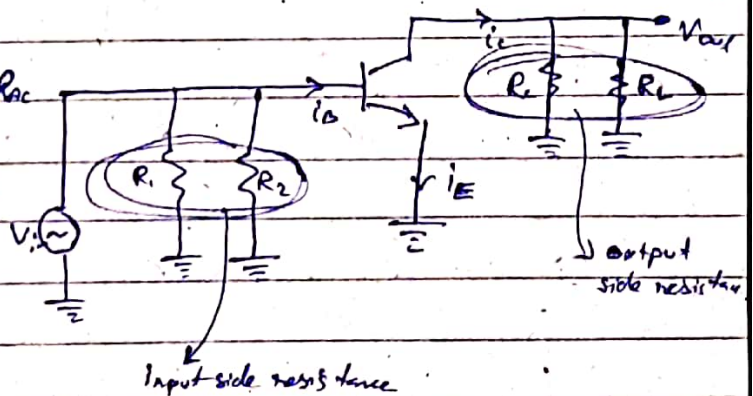 Vout
ic
RAC
Rc
RL
iB
R1
R2
iE
Vi
output
side resistan
Input side resistance